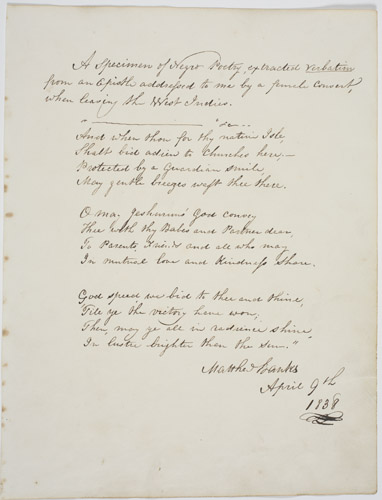 A Specimen of Negro Poetry, extracted verbatim
from an Epistle addressed to me by a female Convert,
when leaving the West Indies.
And when thou for thy native Isle,
Shalt bid adieu to Churches here,—
Protected by a Guardian smile,
May gentle breezes waft thee there.
O may Jeshurun's God convey
Thee with thy Babes and Partner dear,
To Parents, Friends and all who may
In mutual love and Kindness share.
God speed, we bid to thee and thine,
Till ye the victory have won,
Then may ye all in radiance shine
In lustre brighter than the Sun."
Banks
April 9th
1838